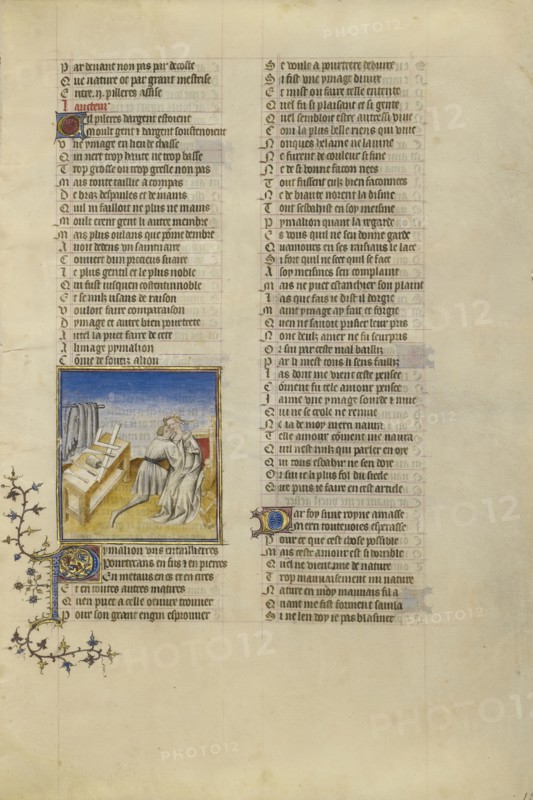 Par devant non pas par decoste
Que nature ot par grant mestrise
Entre .ii. pilleres assise
Laucteur
Cil pileres dargent estoient
Moult gent et dargent soustenoient
Une ymage en lieu de chasse
Quin nert trop haute ne trop basse
Trop grosse ou trop gresle non pas
Mais toute taillie a compas
De braz despaules et de mains
Quil ni failloit ne plus ne mains
Moult erent gent li autre membre
Mais plus oulans que pome dembre
Avoit dedens un saintuaire
Couvert dun precieus suaire
Le plus gentil et le plus noble
Qui fust jusquen costentinnoble
Et se nulz usans de raison
Vouloit faire comparaison
Dymage et autre bien pourtrete
Autel la puet faire de cete
A limage pymalion
Come de souriz a lion
Pymalion uns entaillieres
Pourtraians en fus et en pierres
En metaus en os et en cires
Et en toutes autres matires
Quen puet a telle oeuvre trouver
Pour son grant engin esprouver
Se voult a pourtrere deduire
Si fist une ymage divure
Et mist au faire telle entente
Quel fu si plaisant et si gente
Quel sembloit estre autressi vive
Com la plus belle riens qui vive
Nonques helaine ne lavine
Ne furent de couleur si fine
Ne de si bonne facon nees
Tout fussent eulz bien faconnees
Ne de biaute norent la disme
Tout sesbahist en soy meisme
Pymalion quant la regarde
Es vous quil ne sen donne garde
Quamours en ses raisiaus le lace
Si fort quil ne scet quil se face
A soy meismes sen complaint
Mais ne puet estanchier son plaint
Las que fais je dist il dorgie
Maint ymage ay fait et forgie
Quen ne savoit prisier leur pris
Nonc deulz amer ne fu seurpris
Or sui par ceste mal bailliz
Par li mest touz li sens failliz
Las dont me vient ceste pensee
Coment fu tele amour pensee
Jaime une ymage sourde et mue
Qui ne se crole ne remue
Ne ja de moy mercy naura
Telle amour coment me naura
Quil nest nulz qui parler en oye
Qui touz esbahir ne sen doye
Or sui je li plus fol du siecle
Que puis je faire en cest article
Par foy sune royne amasse
Mercy toutevoies esperasse
Pour ce que cest chose possible
Mais ceste amour est si horrible
Quel ne vient mie de nature
Trop mauvaisement mi nature
Nature en moy mauvais fil a
Quant me fist forment savila
Si ne len doy je pas blasmer
PHOTO12
PHOTO12
PHOTO12
PHOTO12
PHOTO12